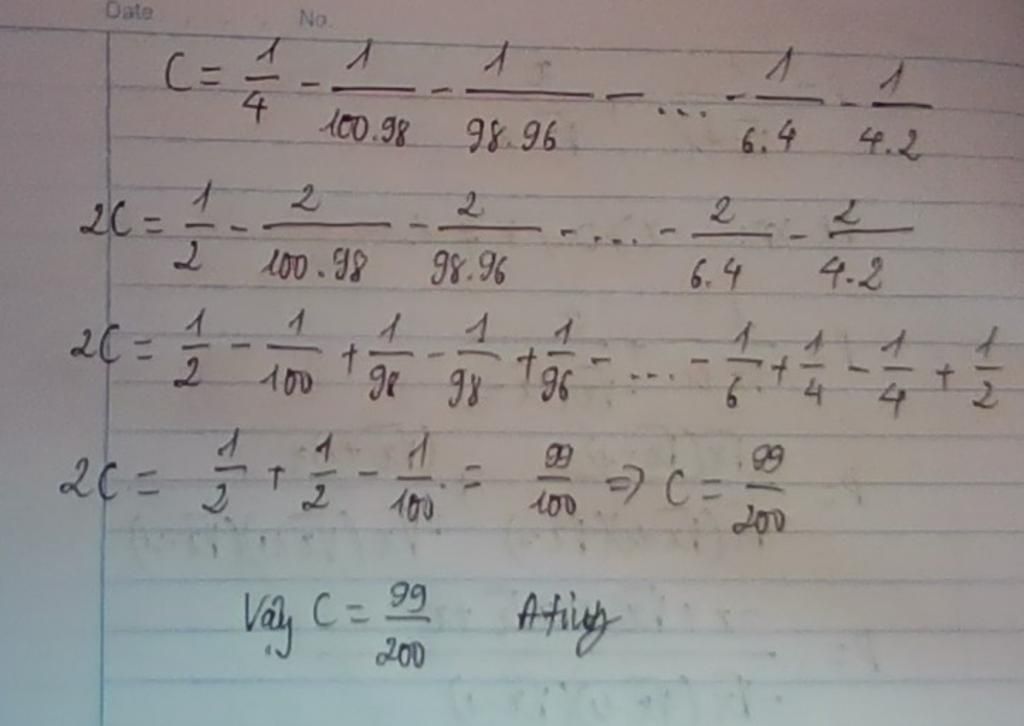 Date No.
C = 1/4 - 1/100.98 - 1/98.96 - ... - 1/6.4 - 1/4.2
2C = 1/2 - 2/100.98 - 2/98.96 - ... - 2/6.4 - 2/4.2
2C = 1/2 - 1/100 + 1/98 - 1/98 + 1/96 - ... - 1/6 + 1/4 - 1/4 + 1/2
2C = 1/2 + 1/2 - 1/100 = 99/100 => C = 99/200
Vậy C = 99/200